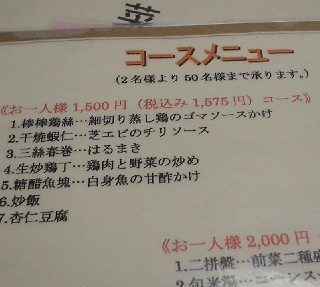 菜
コースメニュー
(2名様より50名様まで承ります。)
《お一人様1,500円(税込み1,575円)コース》
1.棒棒鶏絲…細切り蒸し鶏のゴマソースかけ
2.干焼蝦仁…芝エビのチリソース
3.三絲春巻…はるまき
4.生炒鶏丁…鶏肉と野菜の炒め
5.糖醋魚塊…白身魚の甘酢かけ
6.炒飯
7.杏仁豆腐
《お一人様2,000円
1.二拼盤…前菜二種